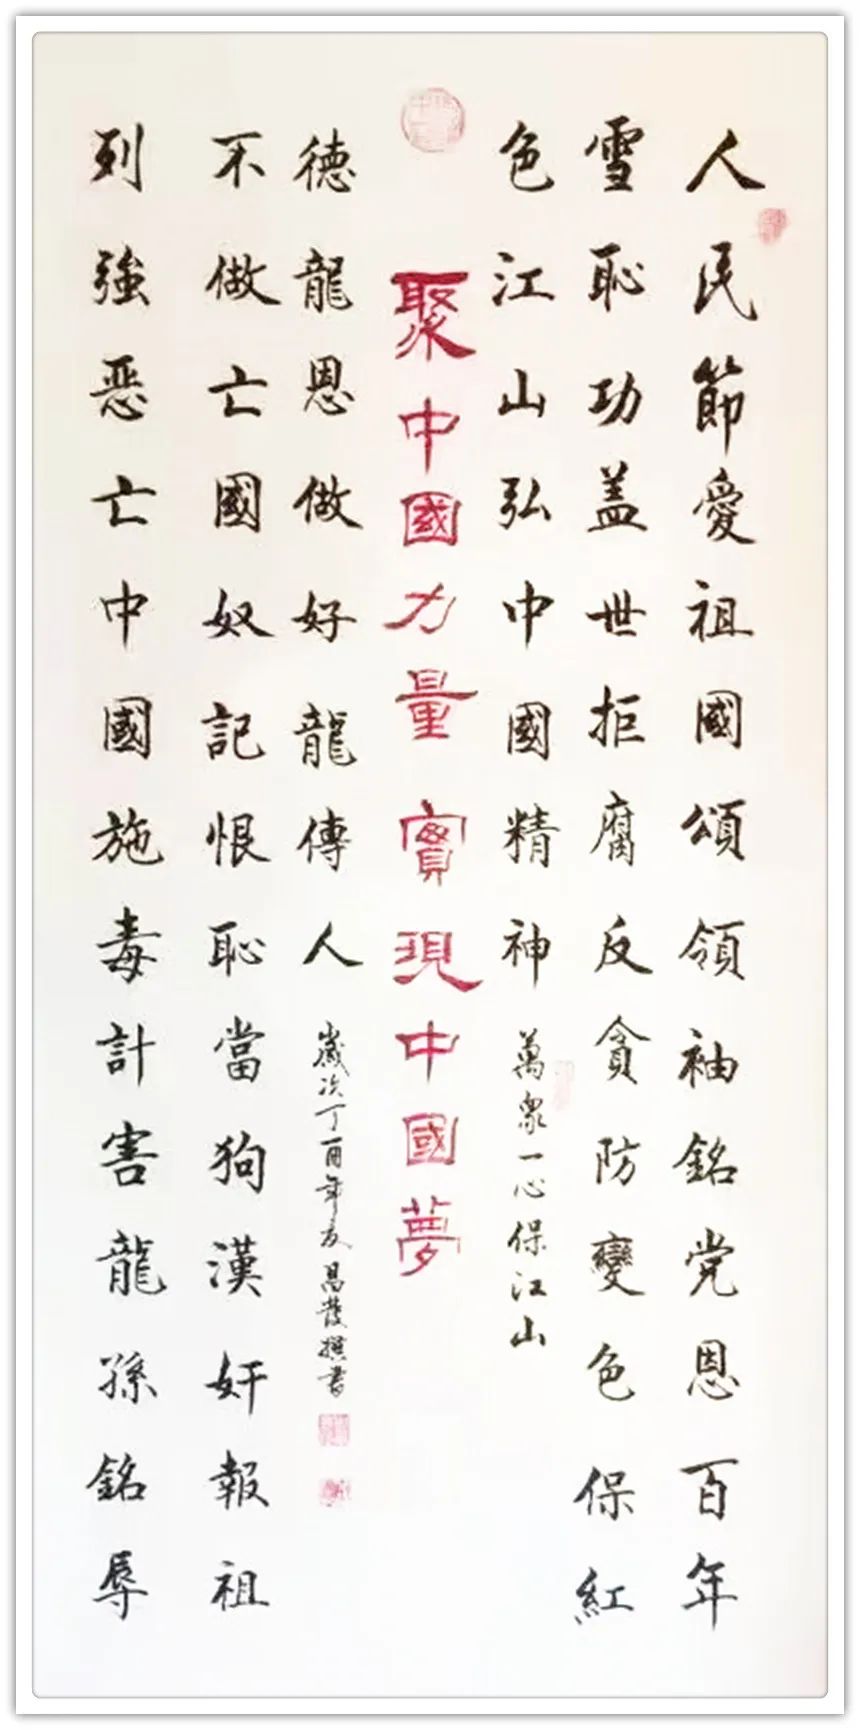 人民節愛祖國頌領袖銘党恩百年
雪恥功盖世拒腐反貪防變色保紅
色江山弘中國精神
萬衆一心保江山
聚中國力量實現中國夢
列強恶亡中國施毒計害龍孫銘辱
不做亡國奴記恨恥當狗漢奸報祖
德龍恩做好龍傳人
歲次丁酉年友昌發撰書